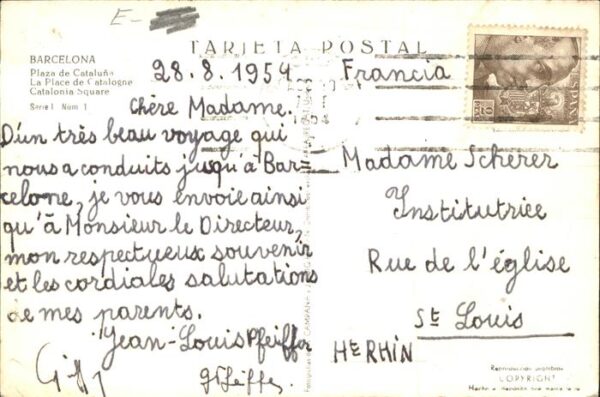 E-
TARJETA POSTAL
BARCELONA
Plaza de Cataluña
La Place de Catalogne
Catalonia Square
Serie I Núm 1
28.8.1954
Chère Madame.
D'un très beau voyage qui
nous a conduits jusqu'à Bar=
celone, je vous envoie ainsi
qu'à Monsieur le Directeur,
mon respectueux souvenir
et les cordiales salutations
de mes parents.
Jean-Louis Pfeiffer
Francia
Madame Scherer
Institutrice
Rue de l'église
St Louis
Ht RHIN
COPYRIGHT